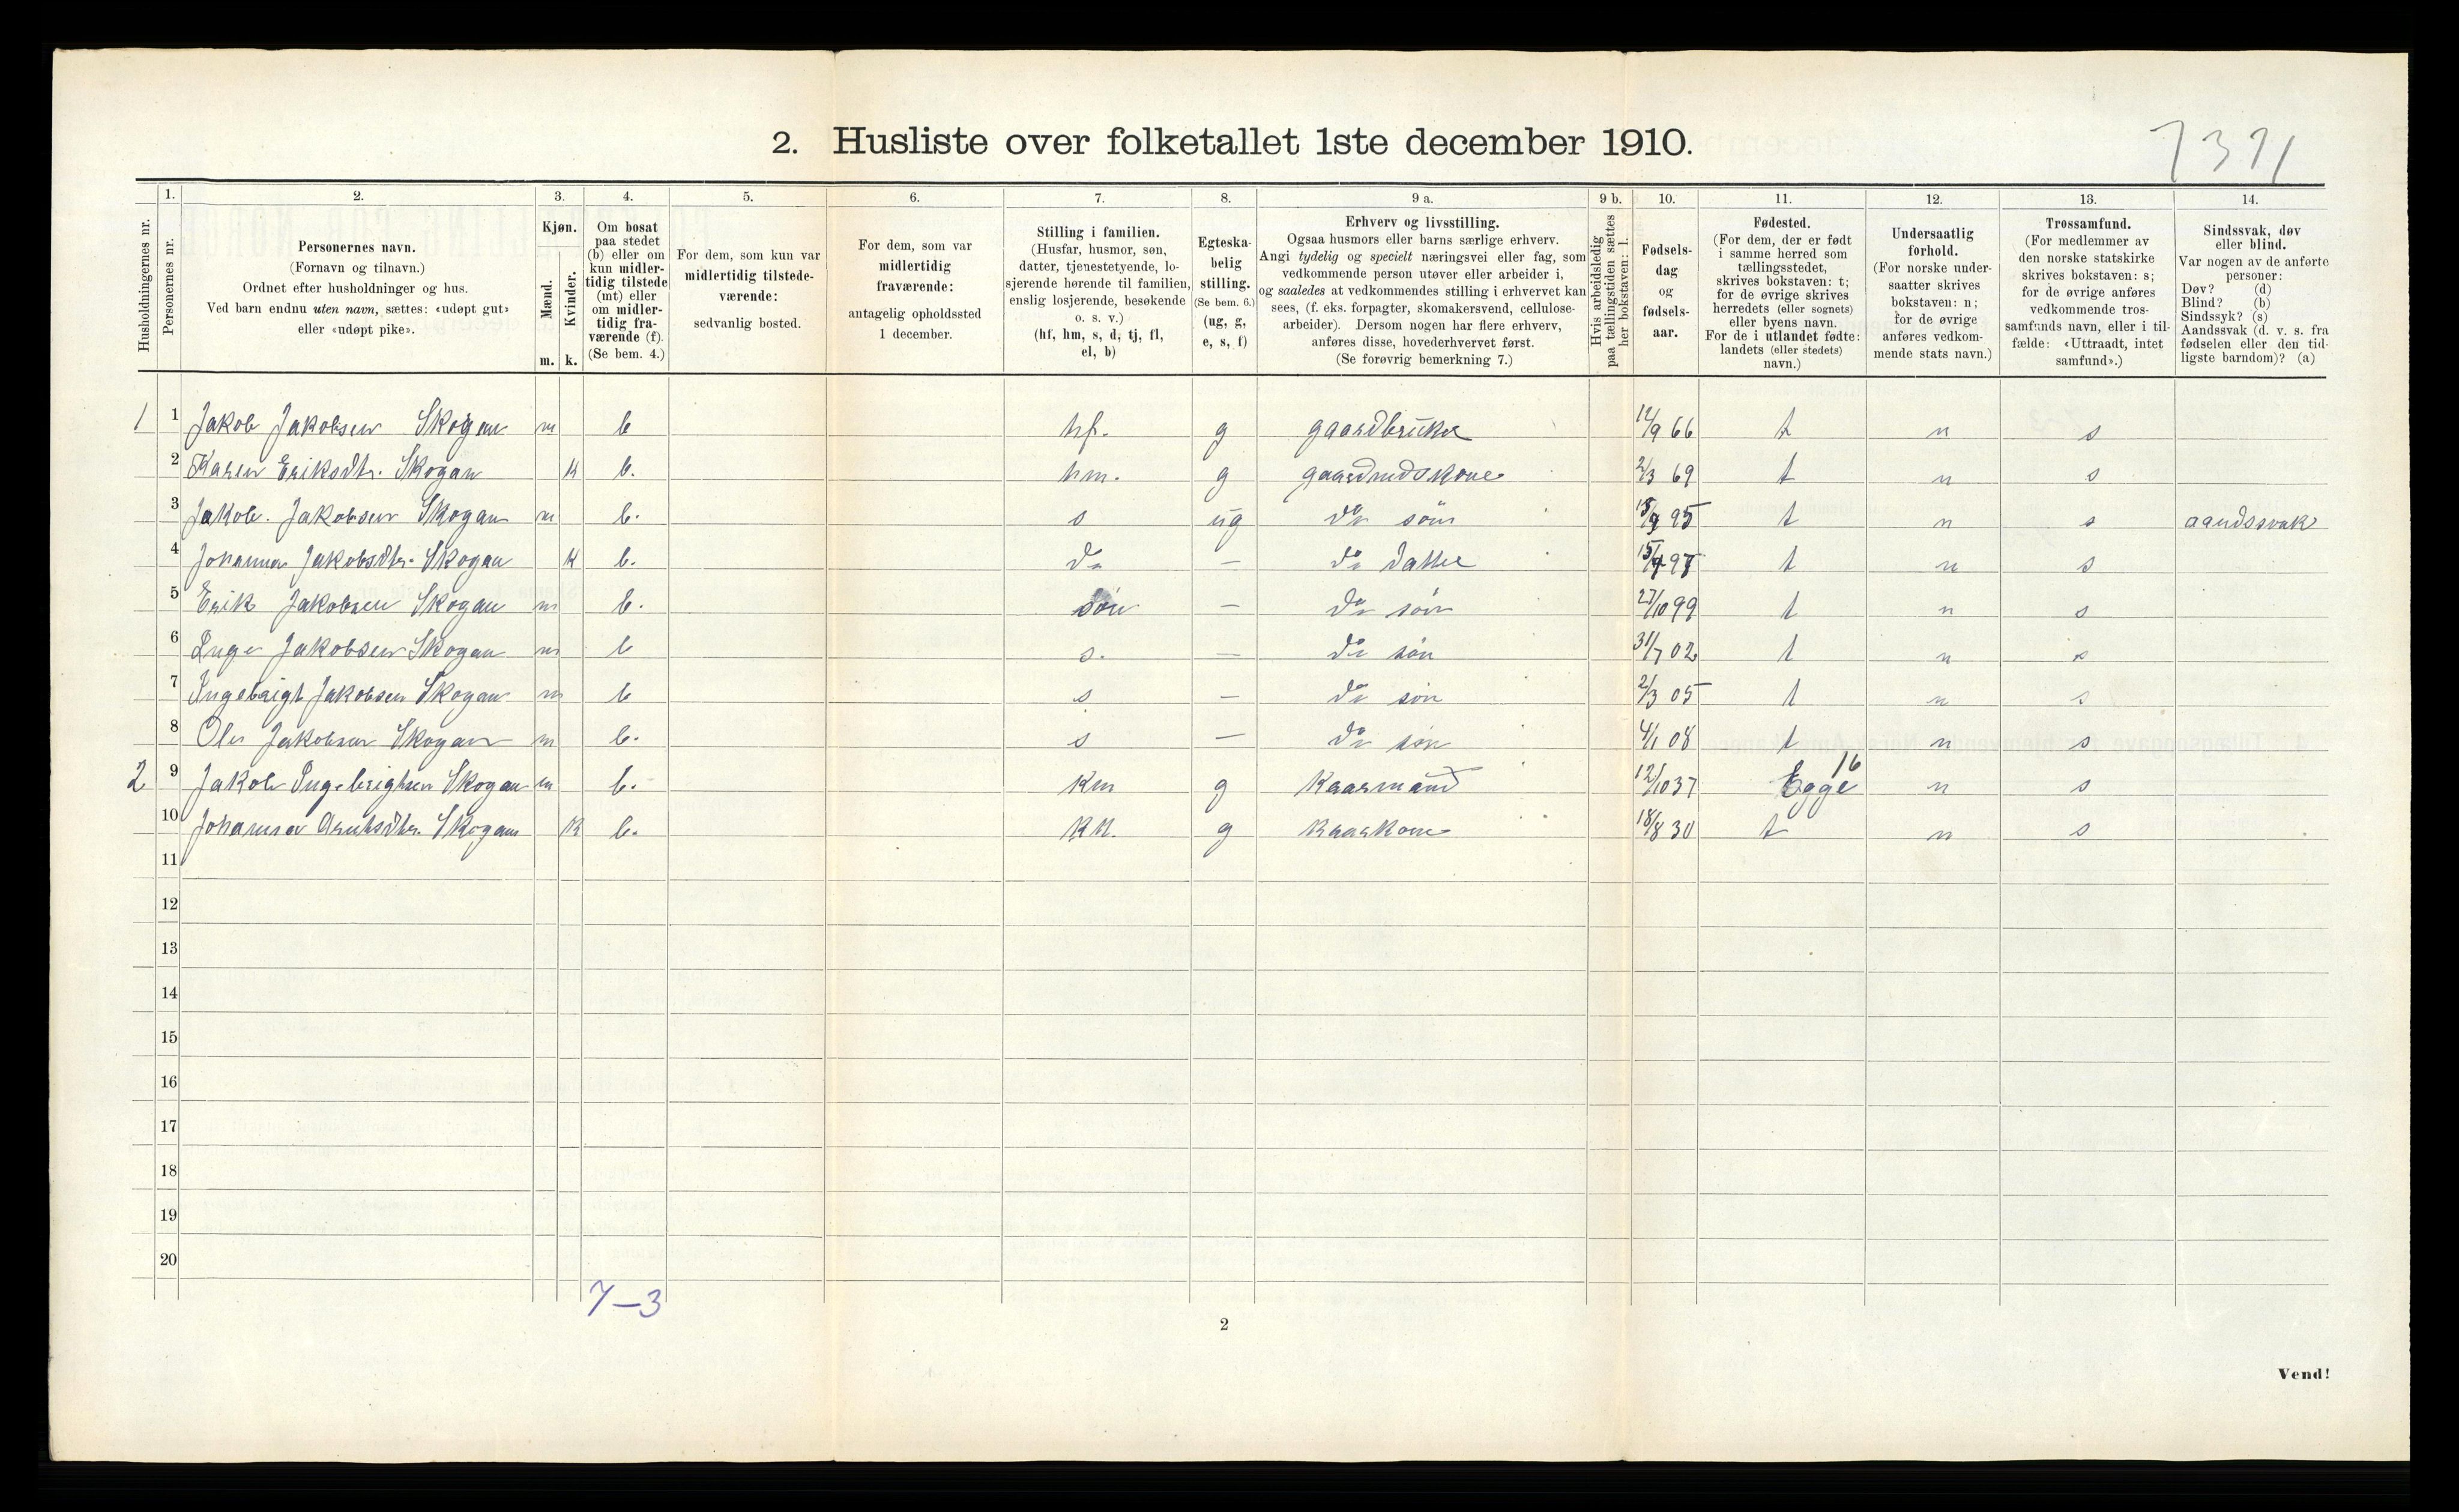 2. Husliste over folketallet 1ste december 1910.
7371
Husholdningernes nr.
1. Personernes nr.
2. Personernes navn.
(Fornavn og tilnavn.)
Ordnet efter husholdninger og hus.
Ved barn endnu uten navn, sættes: «udøpt gut»
eller «udøpt pike».
3. Kjøn.
Mænd. m.
Kvinder. k.
4. Om bosat
paa stedet
(b) eller om
kun midler-
tidig tilstede
(mt) eller
om midler-
tidig fra-
værende (f).
(Se bem. 4.)
5. For dem, som kun var
midlertidig tilstede-
værende:
sedvanlig bosted.
6. For dem, som var
midlertidig
fraværende:
antagelig opholdssted
1 december.
7. Stilling i familien.
(Husfar, husmor, søn,
datter, tjenestetyende, lo-
sjerende hørende til familien,
enslig losjerende, besøkende
o. s. v.)
(hf, hm, s, d, tj, fl,
el, b)
8. Egteska-
belig
stilling.
(Se bem. 6.)
(ug, g,
e, s, f)
9 a. Erhverv og livsstilling.
Ogsaa husmors eller barns særlige erhverv.
Angi tydelig og specielt næringsvei eller fag, som
vedkommende person utøver eller arbeider i,
og saaledes at vedkommendes stilling i erhvervet kan
sees, (f. eks. forpagter, skomakersvend, cellulose-
arbeider). Dersom nogen har flere erhverv,
anføres disse, hovederhvervet først.
(Se forøvrig bemerkning 7.)
9 b. Hvis arbeidsledig
paa tællingstiden sættes
her bokstaven: l.
10. Fødsels-
dag
og
fødsels-
aar.
11. Fødested.
(For dem, der er født
i samme herred som
tællingsstedet,
skrives bokstaven: t;
for de øvrige skrives
herredets (eller sognets)
eller byens navn.
For de i utlandet fødte:
landets (eller stedets)
navn.)
12. Undersaatlig
forhold.
(For norske under-
saatter skrives
bokstaven: n;
for de øvrige
anføres vedkom-
mende stats navn.)
13. Trossamfund.
(For medlemmer av
den norske statskirke
skrives bokstaven: s;
for de øvrige anføres
vedkommende tros-
samfunds navn, eller i til-
fælde: «Uttraadt, intet
samfund».)
14. Sindssvak, døv
eller blind.
Var nogen av de anførte
personer:
Døv? (d)
Blind? (b)
Sindssyk? (s)
Aandssvak (d. v. s. fra
fødselen eller den tid-
ligste barndom)? (a)
1 1 Jakob Jakobsen Skogan m b hf. g gaardbruker 9 66 t n s
2 Karen Eriksdtr. Skogan k b. hm. g gaardmdskone 2/3 69 t n s
3 Jakob. Jakobsen Skogan m b. s ug do søn 95 t n s aandssvak
4 Johanna Jakobsdtr. Skogan k b. do — do datter t n s
5 Erik Jakobsen Skogan m b. søn — do søn 27/10 99 t n s
6 Inge Jakobsen Skogan m b s. — do søn 31/7 02 t n s
7 Ingebrigt Jakobsen Skogan m b s — do søn 2/3 05 t n s
8 Ole Jakobsen Skogan m b. s — do søn 4/1 08 t n s
2 9 Jakob Ingebrigtsen Skogan m b. km g kaarmand 12/10 37 Egge 16 n s
10 Johanna Arntsdtr. Skogan k b. kk. g kaarkone 18/8 30 t n s
11
12
13
14
15
16
17
18
19
20
7–3
2
Vend!